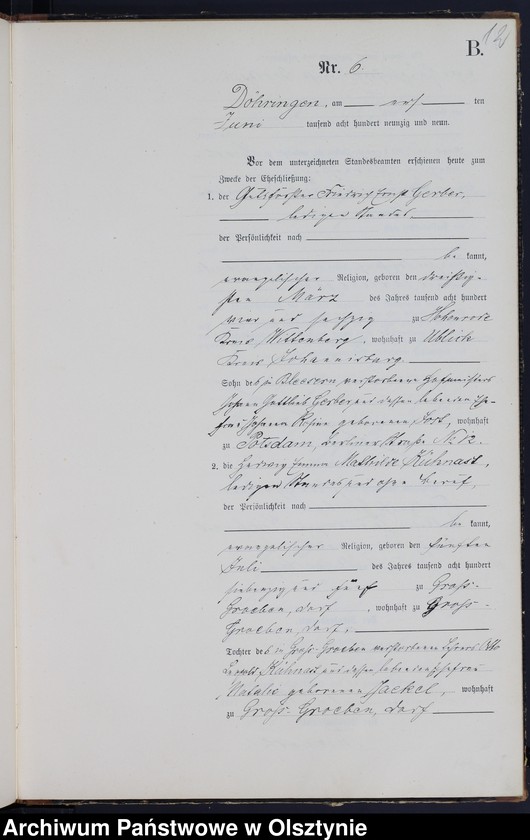 12
B.
Nr. 6.
Döhringen, am ersten
Juni tausend acht hundert neunzig und neun.
Vor dem unterzeichneten Standesbeamten erschienen heute zum
Zwecke der Eheschließung:
1. der Friedrich Ernst Gerber,
ledigen Standes
der Persönlichkeit nach
be kannt,
evangelischer Religion, geboren den dreißig-
sten März des Jahres tausend acht hundert
vier und sechzig zu
Kreis Wittenberg, wohnhaft zu Ublich
Kreis Johannisburg.
Sohn des in Bleesern verstorbenen Hofmeisters
Johann Gottlieb Gerber und dessen lebenden Ehe-
frau Johanna Rosine geborenen Jost, wohnhaft
zu Potsdam, Berliner Straße No
2. die Hedwig Emma Mathilde Kühnast,
ledigen Standes und ohne Beruf,
der Persönlichkeit nach
be kannt,
evangelischer Religion, geboren den fünften
Juli des Jahres tausend acht hundert
siebenzig und fünf zu Groß-
Groeben, Dorf, wohnhaft zu Groß-
Groeben, Dorf,
Tochter des in Groß-Groeben verstorbenen Lehrers Otto
Leopold Kühnast und dessen lebenden Ehefrau
Natalie geborenen Jaekel, wohnhaft
zu Groß-Groeben, Dorf
Archiwum Państwowe w Olsztynie